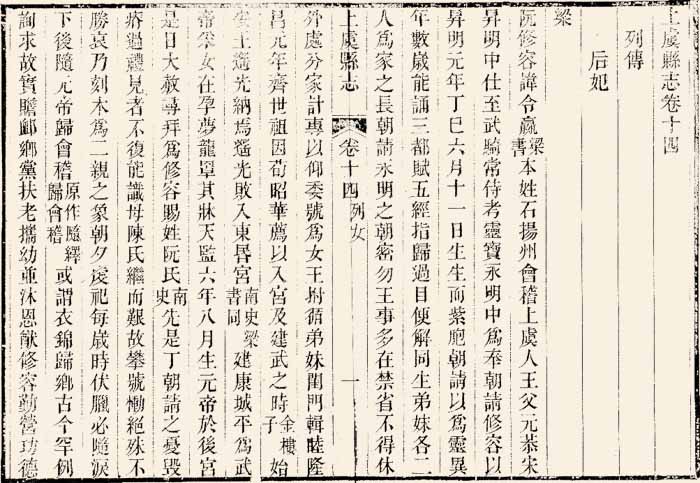 上虞縣志卷十四
列傳
后妃
梁
阮修容諱令嬴梁書本姓石揚州會稽上虞人王父元恭宋
昇明中仕至武騎常侍考靈寶永明中爲奉朝請修容以
昇明元年丁巳六月十一日生生而紫胞朝請以爲靈異
年數歲能誦三都賦五經指歸過目便解同生弟妹各二
人爲家之長朝請永明之朝密勿王事多在禁省不得休
上虞縣志 卷十四 列女 一
外處分家計專以仰委號爲女王拊循弟妹閨門輯睦隆
昌元年齊世祖因荀昭華薦以入宮及建武之時金樓子始
安王遙光納焉遙光敗入東昬宮南史梁書同建康城平爲武
帝采女在孕夢龍罩其牀天監六年八月生元帝於後宮
是日大赦尋拜爲修容賜姓阮氏南史先是丁朝請之憂毀
瘠過禮見者不復能識母陳氏繼而艱故攀號慟絕殊不
勝哀乃刻本爲二親之象朝夕虔祀每歲時伏臘必隨淚
下後隨元帝歸會稽原作隨繹歸會稽或謂衣錦歸鄉古今罕例
詢求故實贍䘏鄉黨扶老攜幼並沐恩猷修容勤營功德